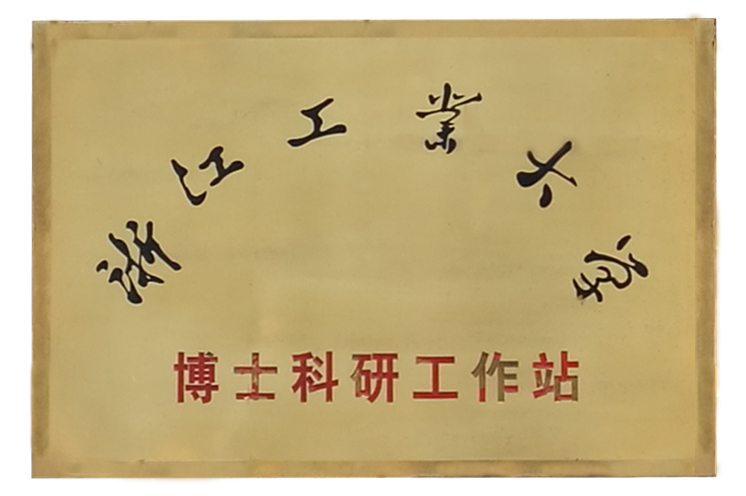 浙江工业大学
博士科研工作站